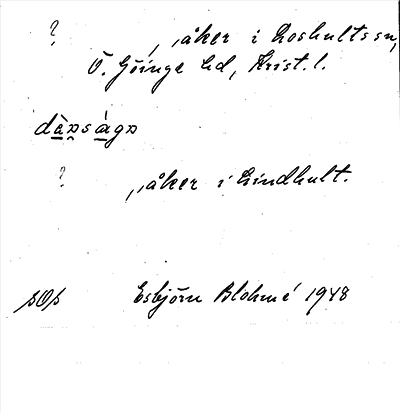 ? , åker i Loshults sn,
Ö. Göinge hd, Krist. l.
dapsågp
? , åker i Lindhult.
Esbjörn Blohmé 1948